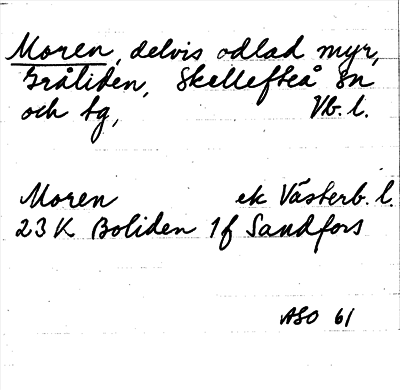 Moren, delvis odlad myr,
Gråliden, Skellefteå sn
och tg, Vb. l.
Moren ek Västerb. l.
23 K Boliden 1f Sandfors
ASO 61